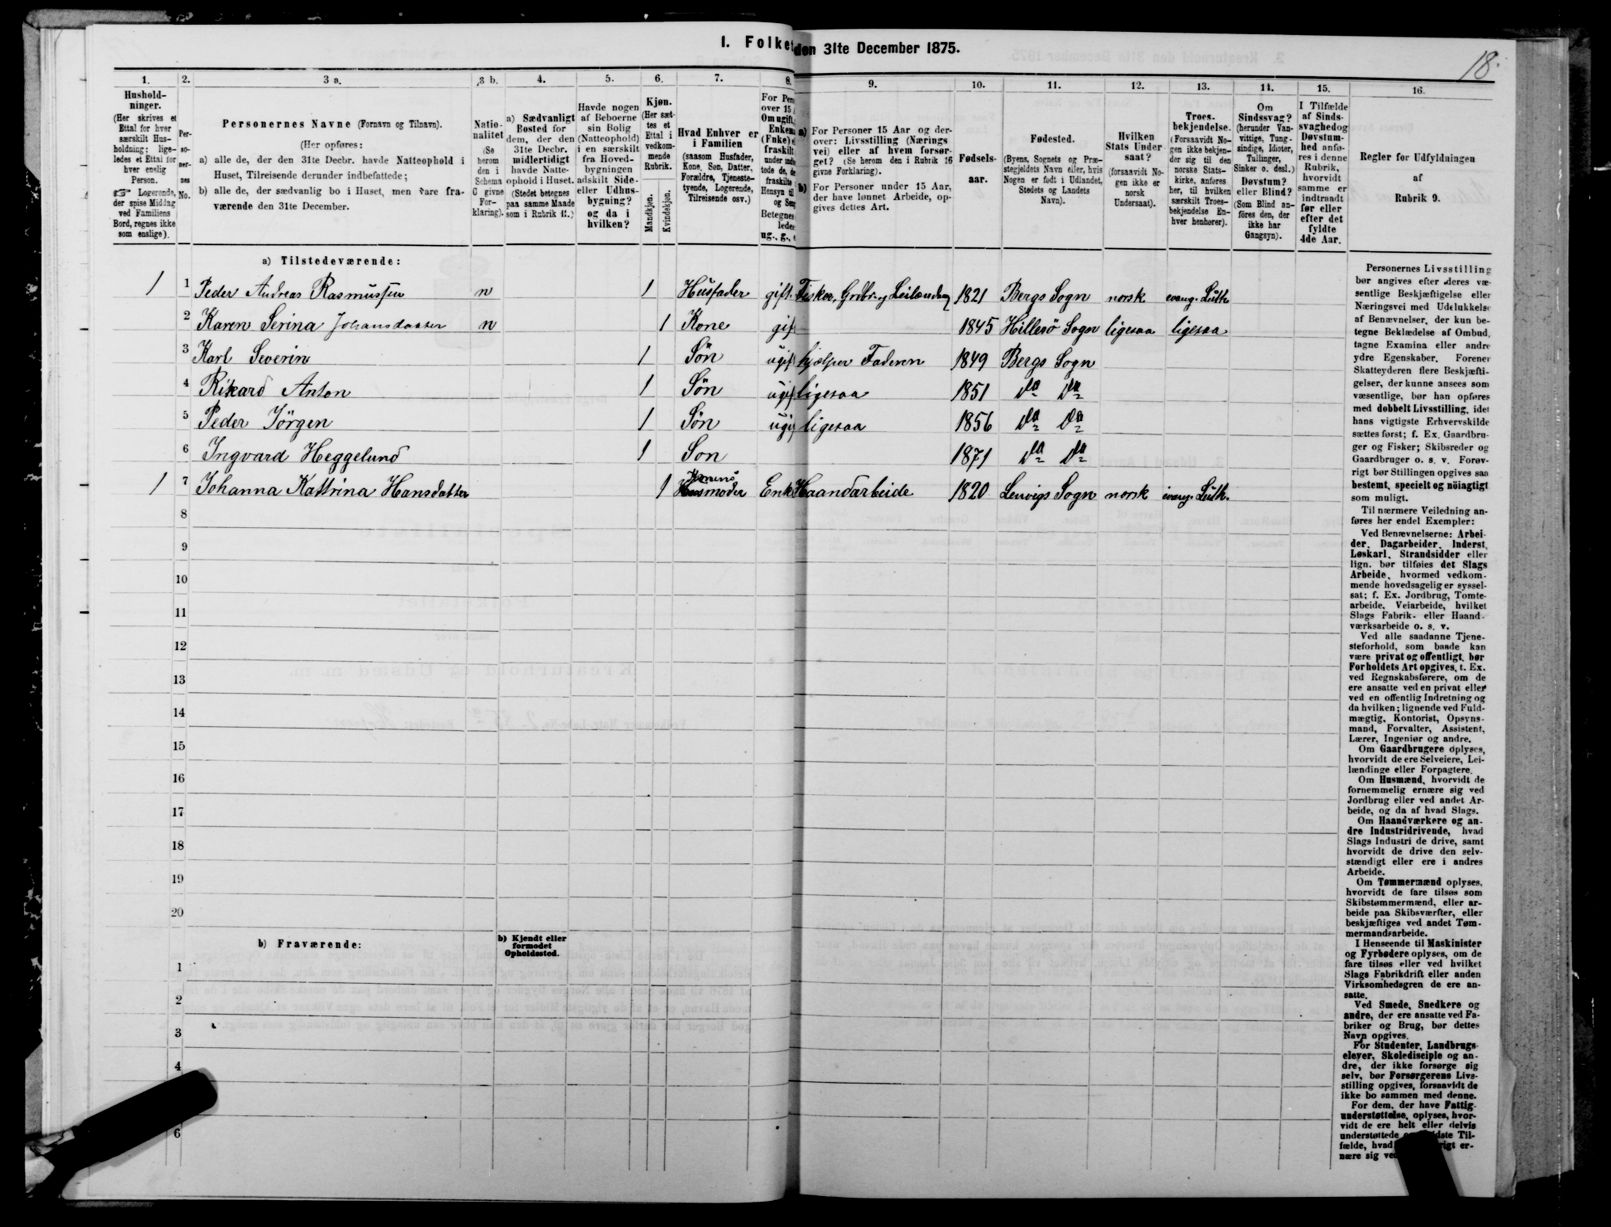 I. Folket
den 31te December 1875.
18.
1.
Hushold-
ninger.
(Her skrives et
Ettal for hver
særskilt Hus-
holdning; lige-
ledes et Ettal for
hver enslig
Person.
Logerende,
der spise Middag
ved Familiens
Bord, regnes ikke
som enslige).
2.
Per-
so-
ner-
nes
No.
3 a.
Personernes Navne (Fornavn og Tilnavn).
(Her opføres:
a) alle de, der den 31te Decbr. havde Natteophold i
Huset, Tilreisende derunder indbefattede;
b) alle de, der sædvanlig bo i Huset, men vare fra-
værende den 31te December.
3 b.
Natio-
nalitet
(Se
herom
den i
Schema
6 givne
For-
klaring).
4.
a) Sædvanligt
Bosted for
dem, der den
31te Decbr.
midlertidigt
havde Natte-
ophold i Huset.
(Stedet betegnes
paa samme Maade
som i Rubrik 11.)
5.
Havde nogen
af Beboerne
sin Bolig
(Natteophold)
i en særskilt
fra Hoved-
bygningen
adskilt Side-
eller Udhus-
bygning?
og da i
hvilken?
6.
Kjøn.
(Her sæt-
tes et
Ettal i
vedkom-
mende
Rubrik.
Mandkjøn.
Kvindekjøn.
7.
Hvad Enhver er
i Familien
(saasom Husfader,
Kone, Søn, Datter,
Forældre, Tjeneste-
tyende, Logerende,
Tilreisende osv.)
8.
For Pers
over 15
Om ugift,
Enkem
(Enke)
fraskilt
under
tede de,
fraskilte
Hensyn til
og Seng
Betegnes
ledes
ug., g.,
9.
a) For Personer 15 Aar og der-
over: Livsstilling (Nærings-
vei) eller af hvem forsør-
get? (Se herom den i Rubrik 16
givne Forklaring).
b) For Personer under 15 Aar,
der have lønnet Arbeide, op-
gives dettes Art.
10.
Fødsels-
aar.
11.
Fødested.
(Byens, Sognets og Præ-
stegjeldets Navn eller, hvis
Nogen er født i Udlandet,
Stedets og Landets
Navn).
12.
Hvilken
Stats Under
saat?
(forsaavidt No-
gen ikke er
norsk
Undersaat).
13.
Troes-
bekjendelse.
(Forsaavidt No-
gen ikke bekjen-
der sig til den
norske Stats-
kirke, anføres
her, til hvilken
særskilt Troes-
bekjendelse En-
hver henhører).
14.
Om
Sindssvag?
(herunder Van-
vittige, Tung-
sindige, Idioter,
Tullinger,
Sinker o. desl.)
Døvstum?
eller Blind?
(Som Blind an-
føres den, der
ikke har
Gangsyn).
15.
I Tilfælde
af Sinds-
svaghed og
Døvstum-
hed anfø-
res i denne
Rubrik,
hvorvidt
samme er
indtraadt
før eller
efter det
fyldte
4de Aar.
16.
Regler for Udfyldningen
af
Rubrik 9.
a) Tilstedeværende:
1 1 Peder Andreas Rasmussen n 1 Husfader gift Fisker, Grdbr. og Leilænding 1821 Bergs Sogn norsk evang. Luth
2 Karen Serina Johansdatter n 1 Kone gift 1845 Hillesö Sogn ligesaa ligesaa
3 Karl Severin 1 Sön ugift hjælper Faderen 1849 Bergs Sogn
4 Rikard Anton 1 Sön ugift ligesaa 1851 Do Do
5 Peder Jörgen 1 Sön ugift ligesaa 1856 Do Do
6 Ingvard Heggelund 1 Son 1871 Do Do
1 7 Johanna Kattrina Hansdatter 1 Husmoder Enke Haandarbeide 1820 Lenvigs Sogn norsk evang. Luth.
8
9
10
11
12
13
14
15
16
17
18
19
20
b) Fraværende:
b) Kjendt eller
formodet
Opholdssted.
1
2
3
4
6
Personernes Livsstilling
bør angives efter deres væ-
sentlige Beskjæftigelse eller
Næringsvei med Udelukkelse
af Benævnelser, der kun be-
tegne Beklædelse af Ombud,
tagne Examina eller andre
ydre Egenskaber. Forener
Skatteyderen flere Beskjæfti-
gelser, der kunne ansees som
væsentlige, bør han opføres
med dobbelt Livsstilling, idet
hans vigtigste Erhvervskilde
sættes først; f. Ex. Gaardbru-
ger og Fisker; Skibsreder og
Gaardbruger o. s. v. Forøv-
rigt bør Stillingen opgives saa
bestemt, specielt og nöiagtigt
som muligt.
Til nærmere Veiledning an-
føres her endel Exempler:
Ved Benævnelserne: Arbei-
der, Dagarbeider, Inderst,
Løskarl, Strandsidder eller
lign. bør tilføies det Slags
Arbeide, hvormed vedkom-
mende hovedsagelig er syssel-
sat; f. Ex. Jordbrug, Tomte-
arbeide, Veiarbeide, hvilket
Slags Fabrik- eller Haand-
værksarbeide o. s. v.
Ved alle saadanne Tjene-
steforhold, som baade kan
være privat og offentligt, bør
Forholdets Art opgives, t. Ex.
ved Regnskabsførere, om de
ere ansatte ved en privat eller
ved en offentlig Indretning og
da hvilken; lignende ved Fuld-
mægtig, Kontorist, Opsyns-
mand, Forvalter, Assistent,
Lærer, Ingeniør og andre.
Om Gaardbrugere oplyses,
hvorvidt de ere Selveiere, Lei-
lændinge eller Forpagtere.
Om Husmænd, hvorvidt de
fornemmelig ernære sig ved
Jordbrug eller ved andet Ar-
beide, og da af hvad Slags.
Om Haandværkere og an-
dre Industridrivende, hvad
Slags Industri de drive, samt
hvorvidt de drive den selv-
stændigt eller ere i andres
Arbeide.
Om Tømmermænd oplyses,
hvorvidt de fare tilsøs som
Skibstømmermænd, eller ar-
beide paa Skibsværfter, eller
beskjæftiges ved andet Tøm-
mermandsarbeide.
I Henseende til Maskinister
og Fyrbødere oplyses, om de
fare tilsøs eller ved hvilket
Slags Fabrikdrift eller anden
Virksomhedsgren de ere an-
satte.
Ved Smede, Snedkere og
andre, der ere ansatte ved Fa-
briker og Brug, bør dettes
Navn opgives.
For Studenter, Landbrugs-
elever, Skoledisciple og an-
dre, der ikke forsørge sig
selv, bør Forsørgerens Livs-
stilling opgives, forsaavidt de
ikke bo sammen med denne.
For dem, der have Fattig-
understøttelse, oplyses, hvor-
vidt de ere helt eller delvis
understøttede
fælde, hvad
nære sig ved